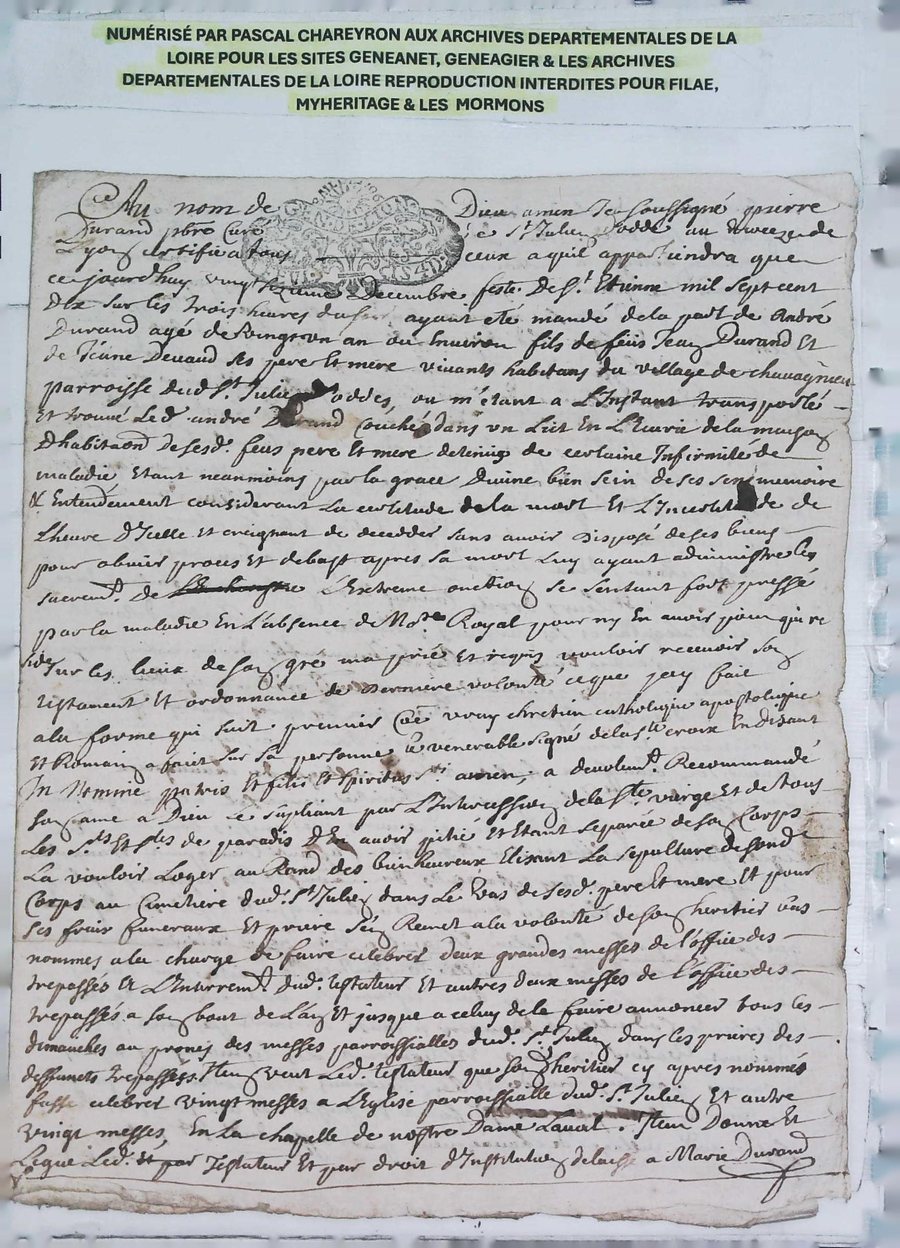 NUMÉRISÉ PAR PASCAL CHAREYRON AUX ARCHIVES DEPARTEMENTALES DE LA
LOIRE POUR LES SITES GENEANET, GENEAGIER & LES ARCHIVES
DEPARTEMENTALES DE LA LOIRE REPRODUCTION INTERDITES POUR FILAE,
MYHERITAGE & LES MORMONS
Au nom de Dieu amen Je soussigné pierre
Durand pbre curé de St Julien Jodde au dioceze de
Lyon certifie a tous ceux a quil appartiendra que
ce jourdhuy vingt sizieme Decembre feste De St Etienne mil sept cent
Dix sur les trois heures du soir ayant ete mandé de la part de André
Durand agé de vingt un an ou Environ fils de feus Jean Durand Et
de Jeane Devaud ses pere Et mere vivants habitans du village de chavagnieu
parroisse dud. St Julien Joddes, ou m'étant a L'Instant transporté
Et trouvé Led. andré Durand Couché dans un Lict En L'Ecurie de la maison
D'habitaon De sesd. feus pere Et mere detenu de certaine Infirmité de
maladie Etant neanmoins par la grace Divine bien sein de ses sens memoire
& Entendement considerant La certitude de la mort Et L'Incertitude de
L'heure D'Icelle et creignant de decedder sans avoir Disposé de ses biens
pour obvier proces et debast apres sa mort Luy ayant administré les
sacremt. De L'Extreme onction se sentant fort pressé
par la maladie En L'absence de Nore Royal pour ny En avoir point qui re
side sur les lieux de son gré ma prié et requis vouloir recevoir son
testament Et ordonnance de Derniere volonté ce que jay fait
a la forme qui suit premier Coe vray chretien catholique apostolique
Et Romain a fait sur sa personne Le venerable signe de la ste croix En disant
In Nomine patris Et filii Et spiritus sti amen, a devotemt. Recommandé
son ame a Dieu Le supliant par L'Intercession de la ste vierge Et de tous
Les Sts Et Stes de paradis D'En avoir pitié et Etant separée de son Corps
La vouloir Loger au Rand des bienheureux Elisant La sepulture de sond.
Corps au Cimetiere dud. St Julien dans Le vas de sesd. pere Et mere Et pour
ses frair funeraux Et priere s'En Remet a la volonté de son heritier bas
nommés a la charge de faire celebrer deux grandes messes de l'office des
trepassés a L'Enterremt. dud. testateur Et autres deux messes de L'office des
trepassés a son bout de L'an Et jusque a celuy de la faire annoncer tous les
dimanches au prones des messes parroissialles dud. St Julien dans les prieres des
deffunts trepasses. Item veut Led. testateur que son heritier cy apres nommés
fasse celebrer vingt messes a L'Eglise parroissialle dud. St Julien Et autre
vingt messes En La chapelle de nostre Dame Laval. Item Donne Et
Legue Led. Et par Testateur Et par droit d'Institution delaisse a Marie Durand